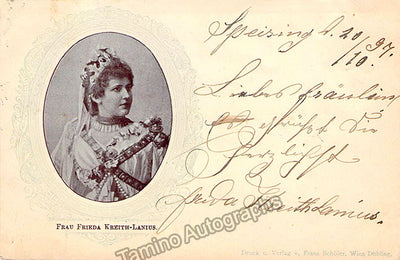 Speising d. 20/10. 97.
Liebes Fräulein
es grüßt Sie
herzlichst
Frieda Kreith Lanius.
FRAU FRIEDA KREITH-LANIUS.
Tamino Autographs
Druck u. Verlag v. Franz Schöler, Wien Döbling.